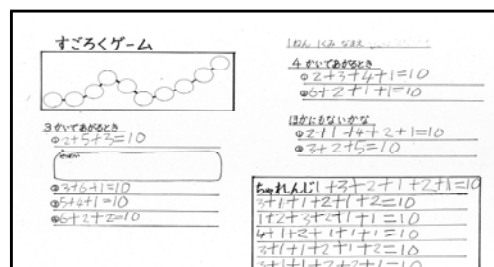 すごろくゲーム
3かいであがるとき
①2+5+3=10
②3+6+1=10
③5+4+1=10
④6+2+2=10
1ねん 1くみ なまえ
4かいであがるとき
①2+3+4+1=10
②6+2+1+1=10
ほかにもないかな
①2+1+4+2+1=10
②3+2+5=10
ちゃれんじ1+3+2+1+2+1=10
3+1+1+2+1+2=10
1+2+3+2+1+1=10
4+1+2+1+1+1=10
3+1+1+2+1+2=10
3+1+1+2+2+1=10